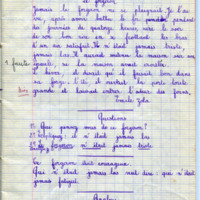 forgeron
Jamais le forgeron ne se plaignait. Je l'ai
vu, après avoir battu le fer pendant
des journées de quatorze heures, rire le soir
de son bon rire en se frottant les bras
Il n'était jamais triste,
jamais las. Il aurait soutenu la maison sur son
1 faute
si la maison avait croulé.
L'hiver, il disait qu'il faisait bon dans
sa forge. L'été il ouvrait la porte toute
grande et laissait entrer l'odeur des foins.
Bon
Emile Zola
Questions
1° Que pensez-vous de ce forgeron?
2°
3° Le forgeron n'était jamais triste
Ce forgeron était courageux
Qui n'était jamais las veut dire : qui n'était
jamais fatigué.